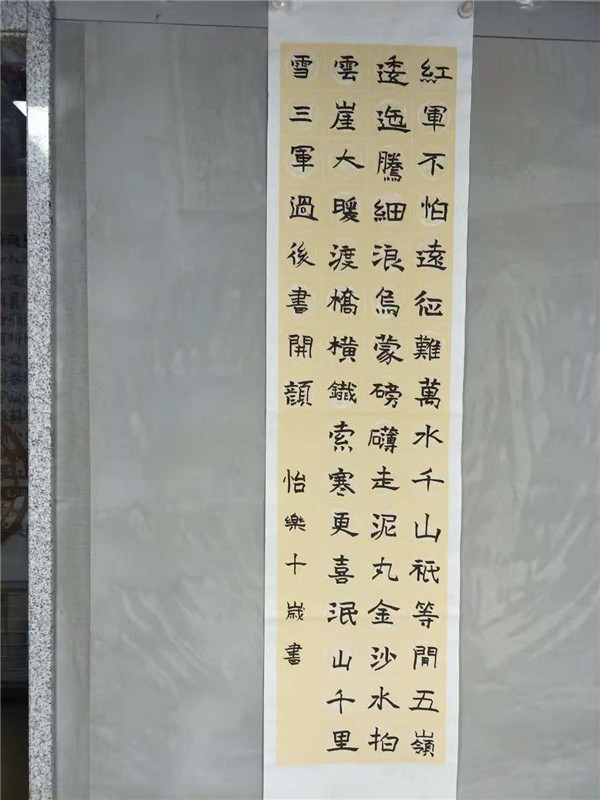 紅軍不怕遠征難萬水千山祇等閒五嶺
逶迤騰細浪烏蒙磅礴走泥丸金沙水拍
雲崖大暖渡橋橫鐵索寒更喜泯山千里
雪三軍過後書開顏
怡樂十歲書